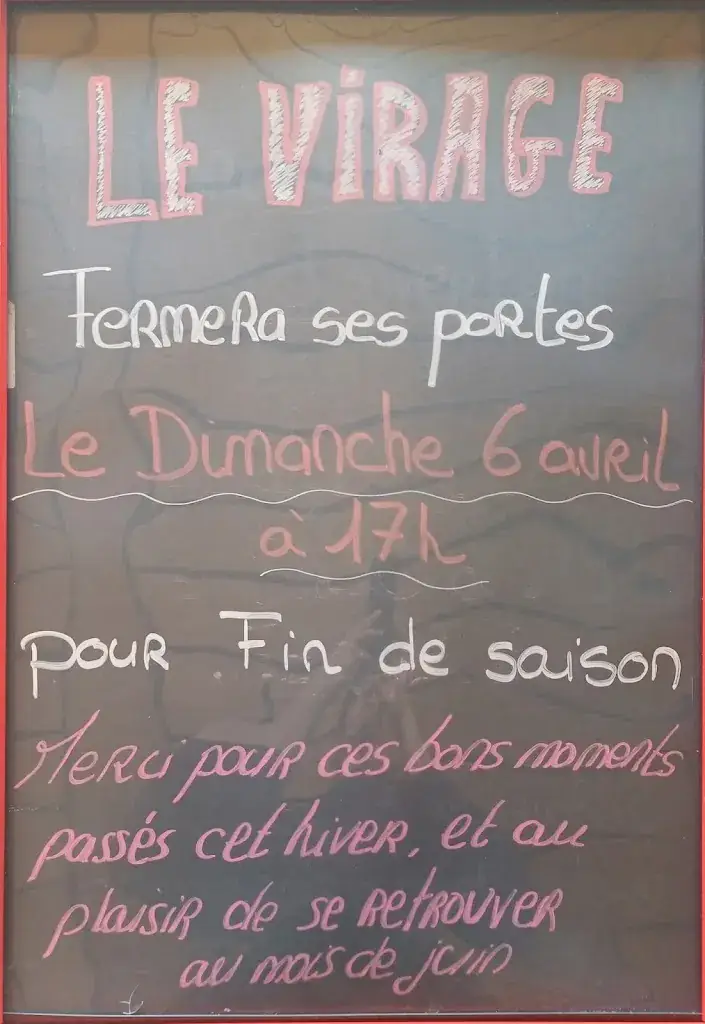 LE VIRAGE
Fermera ses portes
Le Dimanche 6 avril
à 17h
pour Fin de saison
Merci pour ces bons moments
passés cet hiver, et au
plaisir de se retrouver
au mois de juin